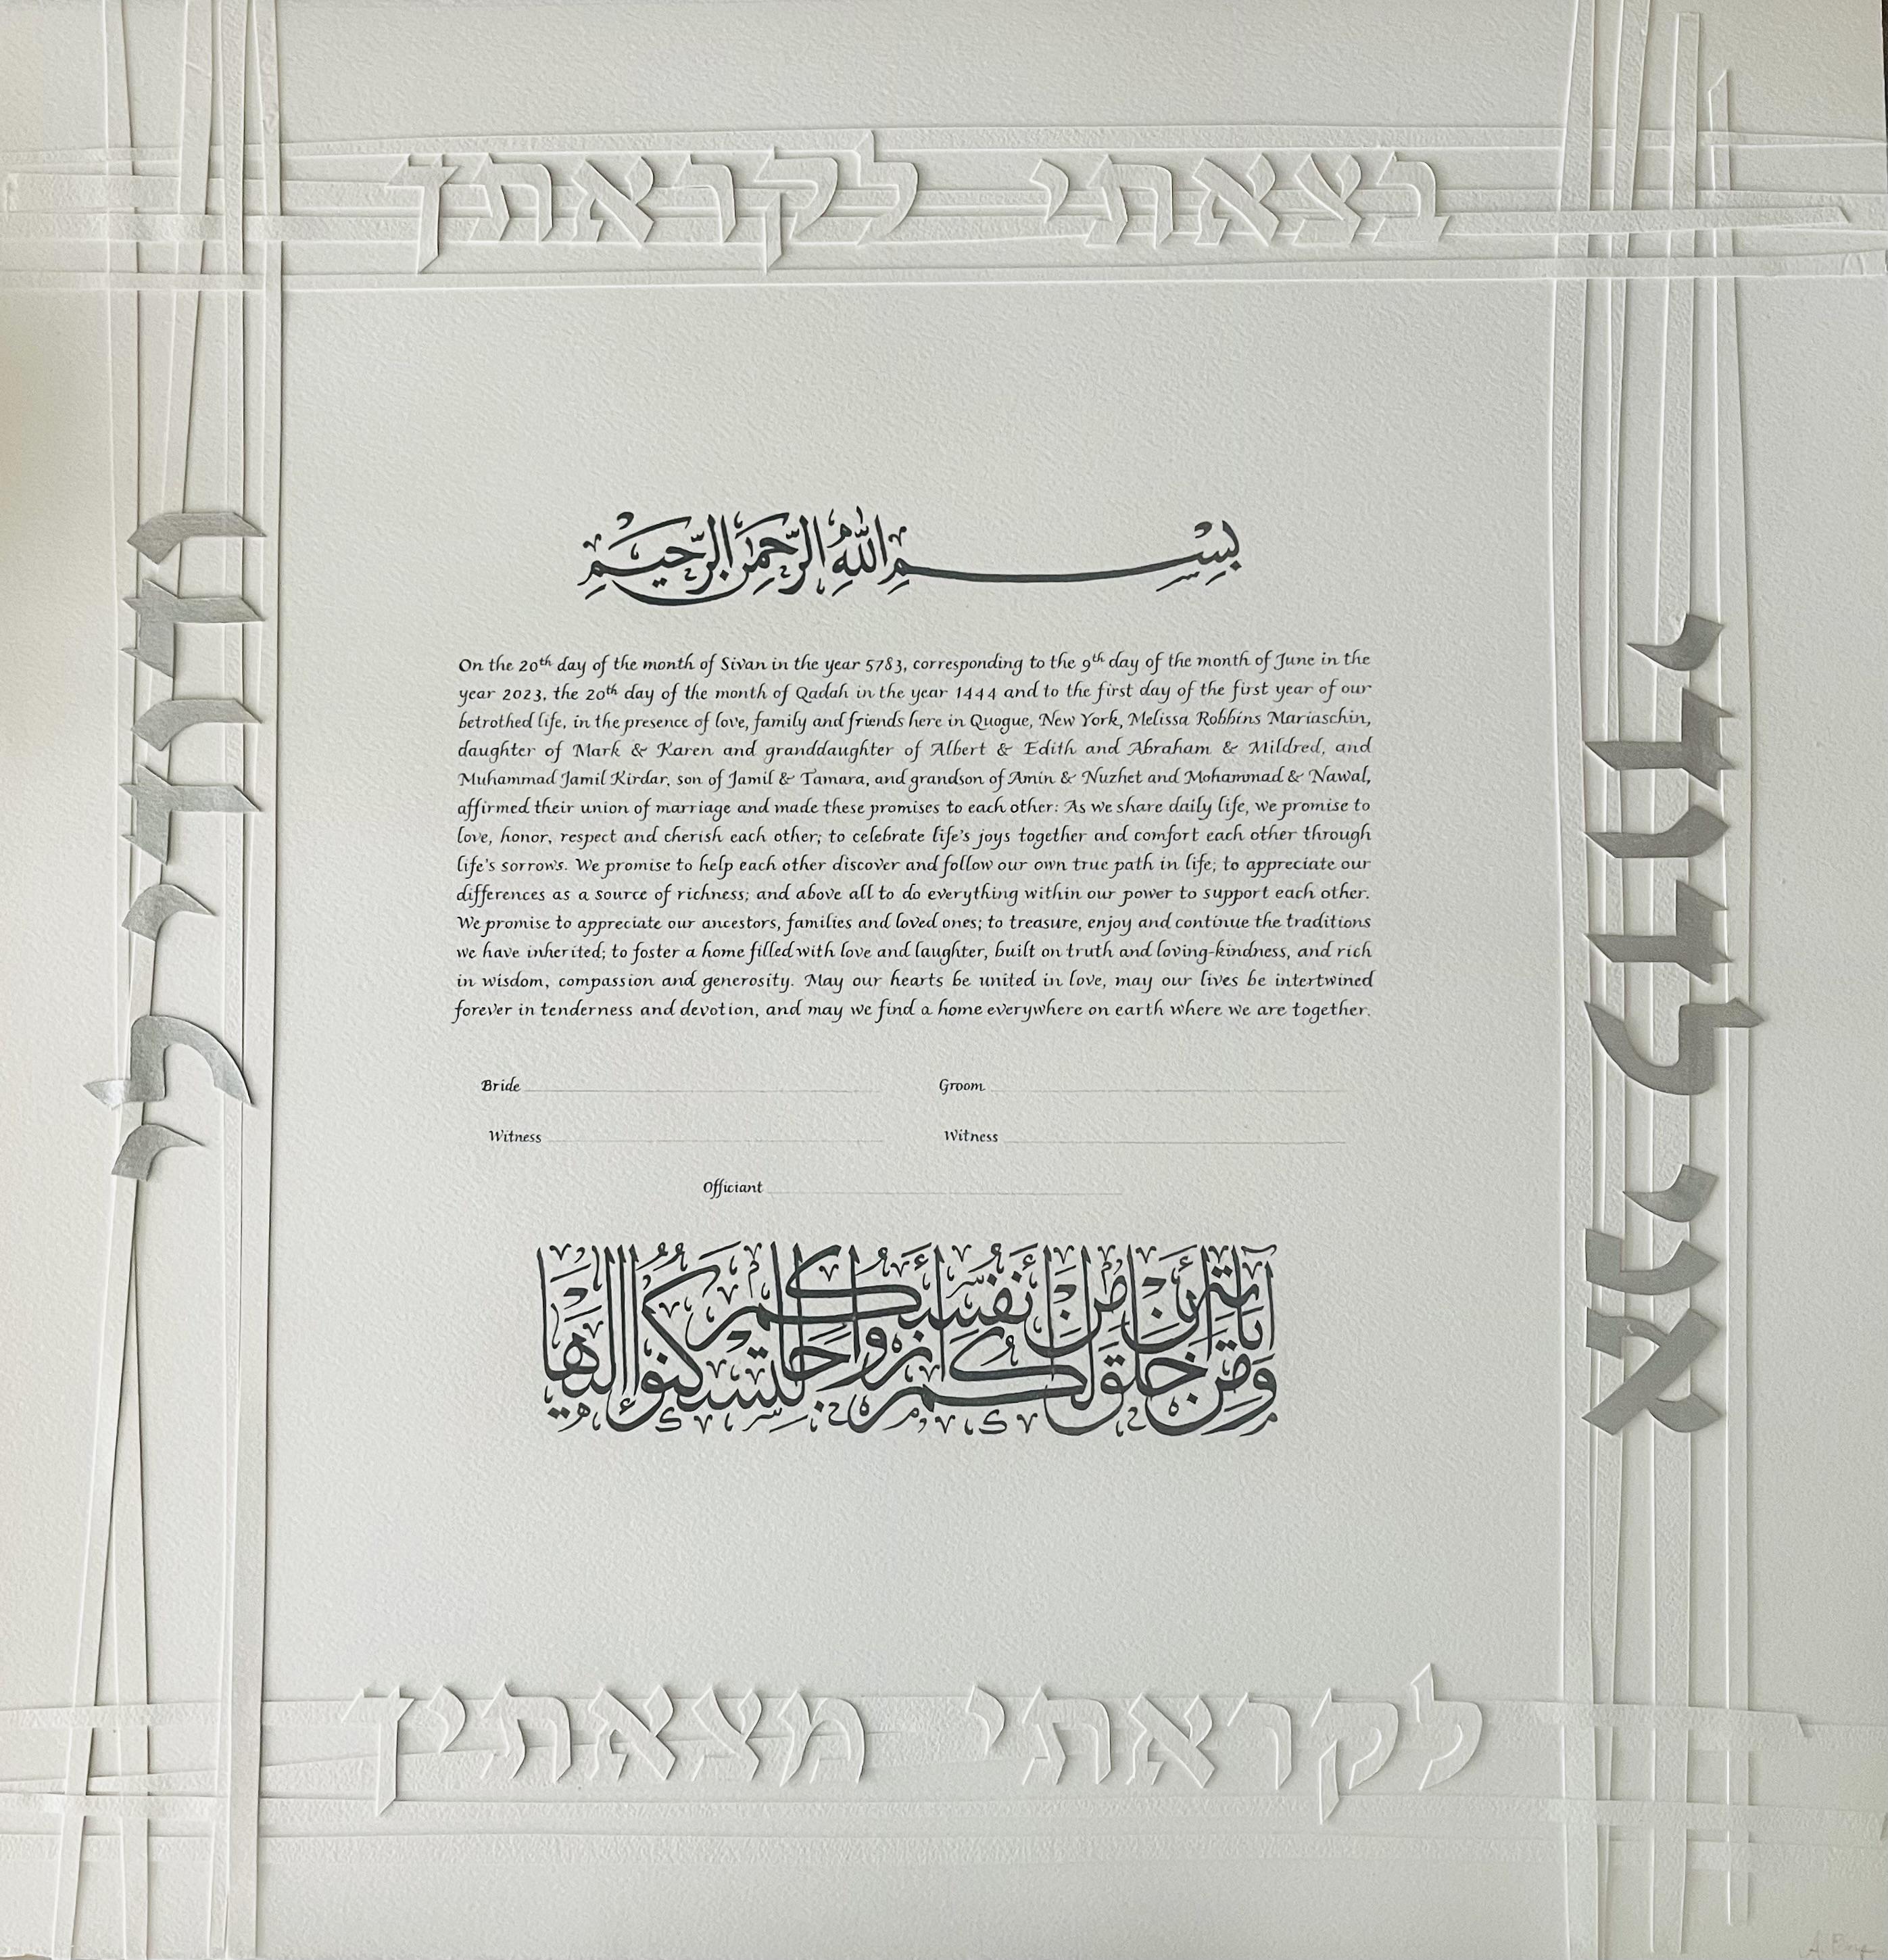 בצאתי לקראתך
אני לדודי
ודודי לי
بِسْمِ اللَّهِ الرَّحْمَنِ الرَّحِيمِ
On the 20th day of the month of Sivan in the year 5783, corresponding to the 9th day of the month of June in the
year 2023, the 20th day of the month of Qadah in the year 1444 and to the first day of the first year of our
betrothed life, in the presence of love, family and friends here in Quogue, New York, Melissa Robbins Mariaschin,
daughter of Mark & Karen and granddaughter of Albert & Edith and Abraham & Mildred, and
Muhammad Jamil Kirdar, son of Jamil & Tamara, and grandson of Amin & Nuzhet and Mohammad & Nawal,
affirmed their union of marriage and made these promises to each other: As we share daily life, we promise to
love, honor, respect and cherish each other; to celebrate life's joys together and comfort each other through
life's sorrows. We promise to help each other discover and follow our own true path in life; to appreciate our
differences as a source of richness; and above all to do everything within our power to support each other.
We promise to appreciate our ancestors, families and loved ones; to treasure, enjoy and continue the traditions
we have inherited; to foster a home filled with love and laughter, built on truth and loving-kindness, and rich
in wisdom, compassion and generosity. May our hearts be united in love, may our lives be intertwined
forever in tenderness and devotion, and may we find a home everywhere on earth where we are together.
Bride Groom
Witness Witness
Officiant
وَمِنْ آيَاتِهِ أَنْ خَلَقَ لَكُمْ مِنْ أَنْفُسِكُمْ أَزْوَاجًا لِتَسْكُنُوا إِلَيْهَا
לקראתי מצאתיך